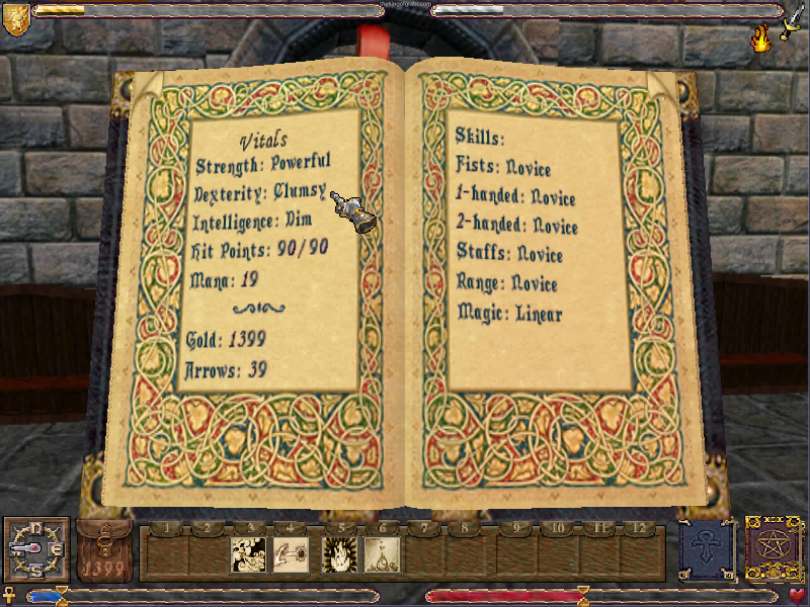 Vitals
Strength: Powerful
Dexterity: Clumsy
Intelligence: Dim
Hit Points: 90/90
Mana: 19
Gold: 1399
Arrows: 39
Skills:
Fists: Novice
1-handed: Novice
2-handed: Novice
Staffs: Novice
Range: Novice
Magic: Linear
N
E
S
1399
1 2 3 4 5 6 7 8 9 10 11 12